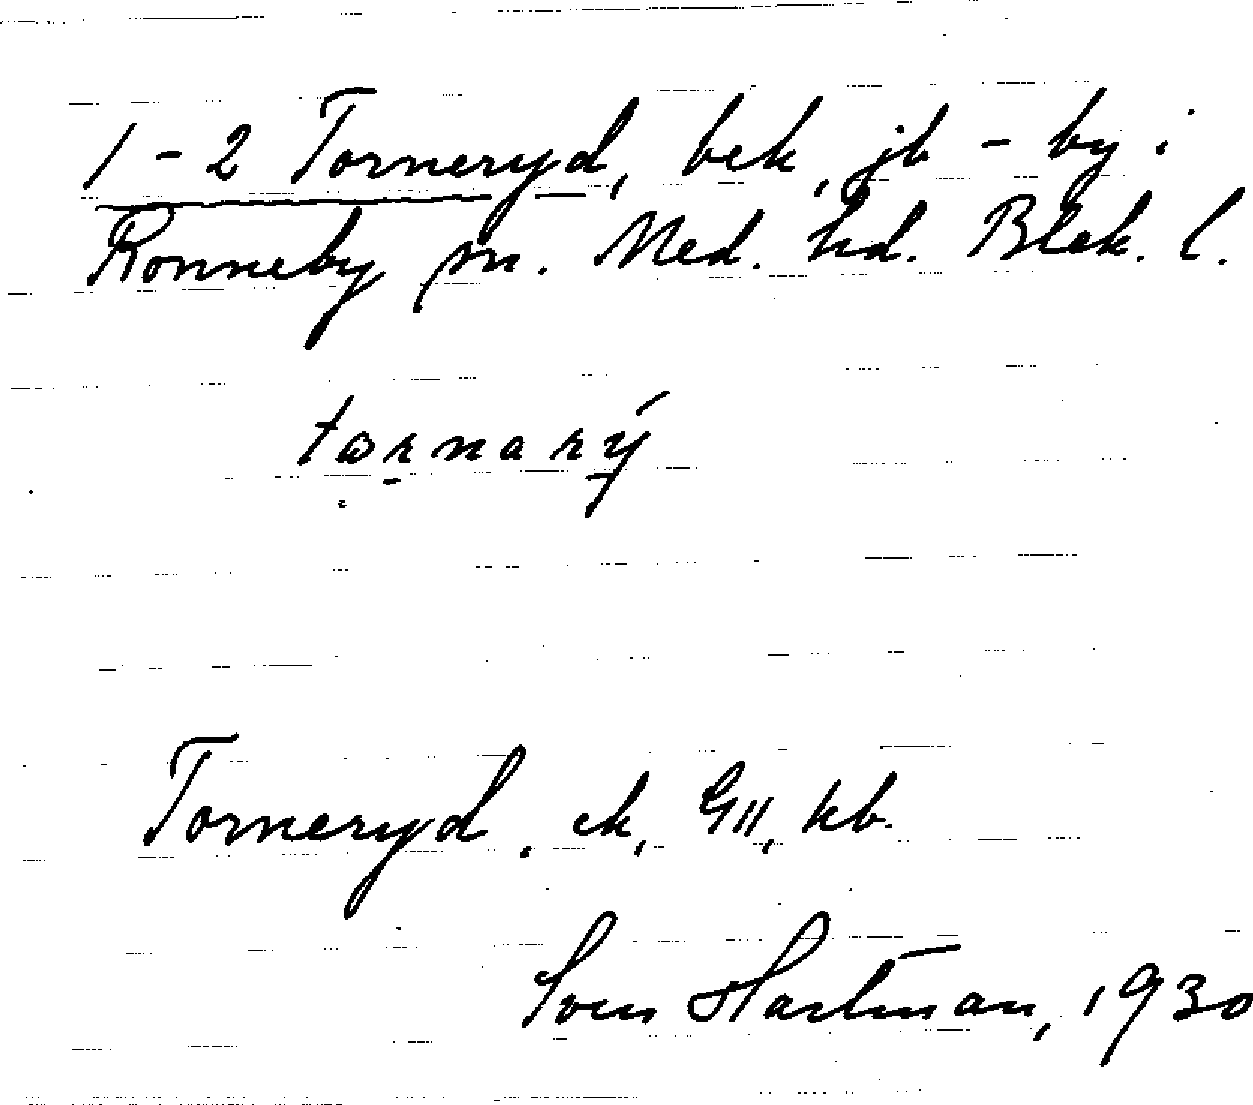 1-2 Torneryd, bek, jb - by i
Ronneby sn. Med. hd. Blek. l.
tornarý
Torneryd. ek, GII, kb.
Sven Hartman, 1930